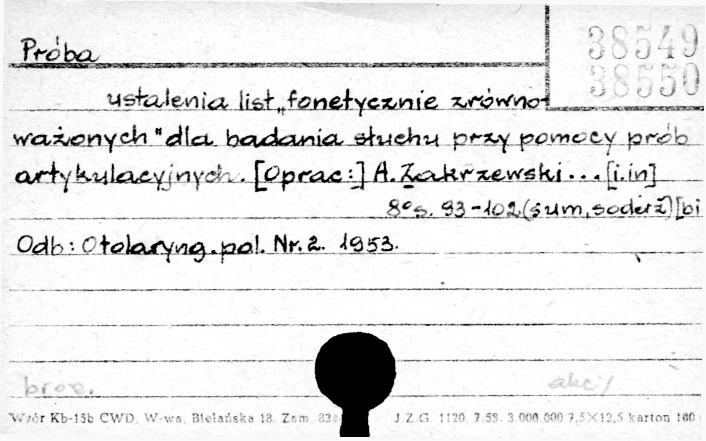 38549
38550
Próba
ustalenia list „fonetycznie zrówno-
ważonych" dla badania słuchu przy pomocy prób
artykulacyjnych. [Oprac:] A. Zakrzewski... [i.in]
8° s. 93-102 (sum, soderž) [bi
Odb: Otolaryng. pol. Nr. 2. 1953.
bros. akc/
Wzór Kb-15b CWD, W-wa, Bielańska 18. Zam. 834 J.Z.G. 1120. 7.53. 3.000.000 7,5×12,5 karton 160